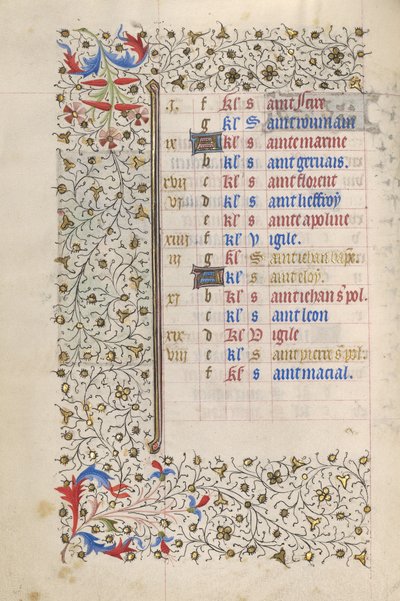 x. f kl s aint fere
g kl S aint Romain
ix A kl s ainte marine
b kl s aint geruais.
xvii c kl s aint florent
vi d kl s aint lieffroy
e kl s ainte apoline
xiiii f kl V igile.
iii g kl S aint iehan bapt.
A kl s aint eloy.
xi b kl s aint iehan s pol.
c kl s aint leon
xix d kl V igile
viii e kl S aint pierre s pol.
f kl s aint macial.